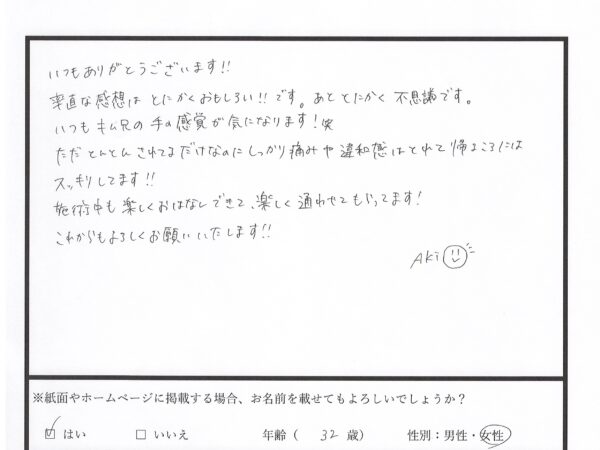 いつもありがとうございます!!
率直な感想は とにかくおもしろい!!です。あと とにかく 不思議です。
いつも キム兄の 手の感覚が 気になります!笑
ただ とんとん されてるだけなのに しっかり 痛みや 違和感は とれて 帰るころには
スッキリしてます!!
施術中も 楽しくおはなしできて、楽しく 通わせてもらってます!
これからもよろしくお願いいたします!!
AKi
※紙面やホームページに掲載する場合、お名前を載せてもよろしいでしょうか?
☑ はい □ いいえ 年齢( 32 歳) 性別:男性・女性